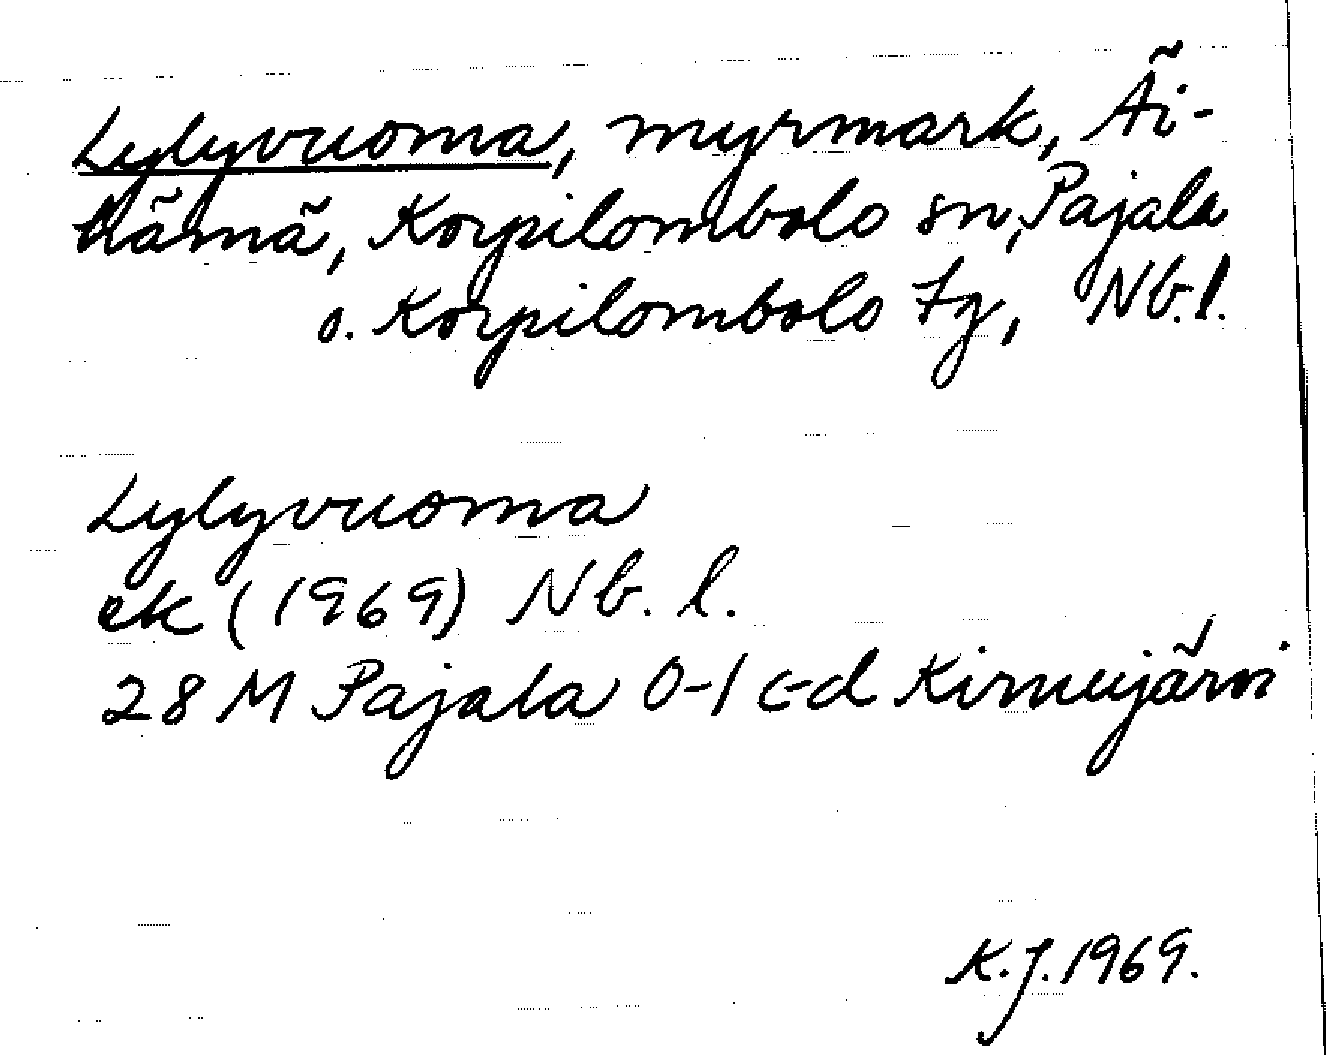 Lylyvuoma, myrmark, Äi-
tämä, Korpilombolo sn, Pajala
o. Korpilombolo tg, Nb.l.
Lylyvuoma
ek (1969) Nb. l.
28 M Pajala 0-1 c-d Kirnujärvi
K.J. 1969.